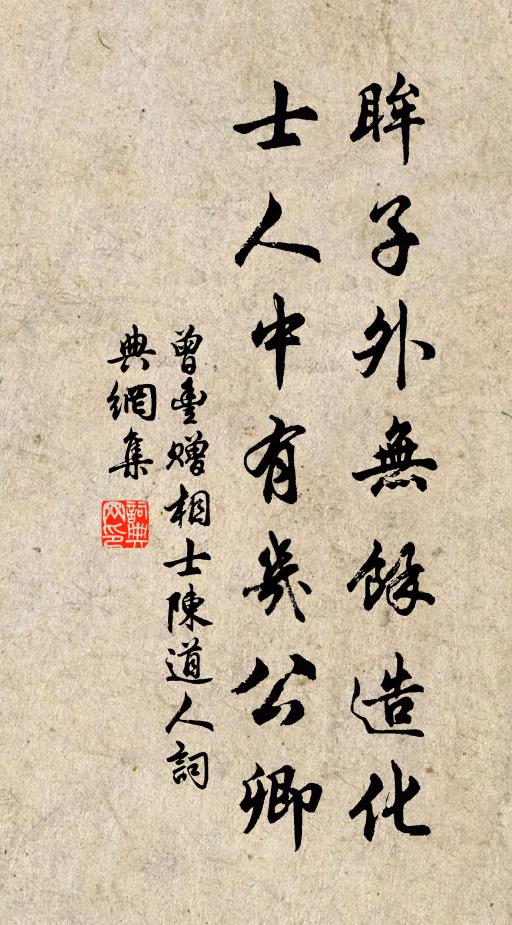 眸子外無餘造化
士人中有幾公卿
曾豐贈相士陳道人詞
典網集
詞典網印